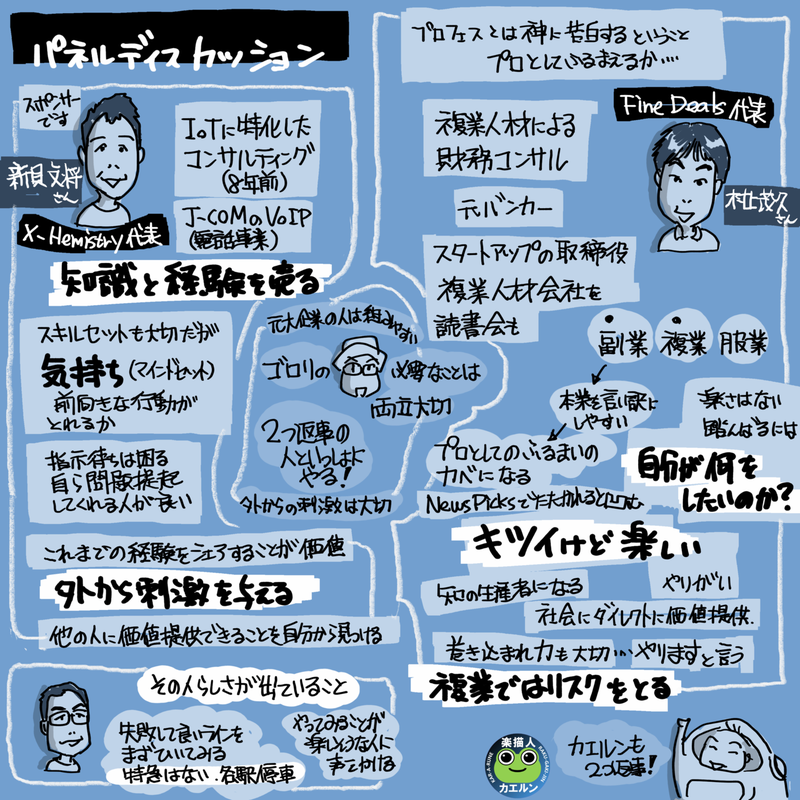 パネルディスカッション
スポンサー
です
新貝文将
さん
X-Hemistry代表
IoTに特化した
コンサルティング
(8年前)
J-COMのVoIP
(電話事業)
知識と経験を売る
スキルセットも大切だが
気持ち(マインドセット)
前向きな行動が
とれるか
指示待ちは困る
自ら問題提起
してくれる人が良い
これまでの経験をシェアすることが価値
外から刺激を与える
他の人に価値提供できることを自分から見つける
元大企業の人は組みやすい
ゴロリの
必要なことは
両立大切
2つ返事の
人といっしょに
やる!
外からの刺激は大切
プロフェスとは神に告白するということ
プロとしてふるまえるか....
Fine Deals代表
村上茂久
さん
複業人材による
財務コンサル
元バンカー
スタートアップの取締役
複業人材会社を
読書会も
副業
複業
服業
本業を言い訳に
しやすい
プロとしてのふるまいの
カベになる
NewsPicksでたたかれると凹む
楽さはない
踏んばるには
自分が何を
したいのか?
キツイけど楽しい
知の生産者になる
やりがい
社会にダイレクトに価値提供.
巻き込まれ力も大切…やりますと言う
複業ではリスクをとる
その人らしさが出ていること
失敗して良いラインを
まずひいてみる
特急はない.各駅停車
やってみることが
楽しそうな人に
声をかける
楽描人
RAKU-GAKI-JIN
カエルン
カエルンも
2つ返事!